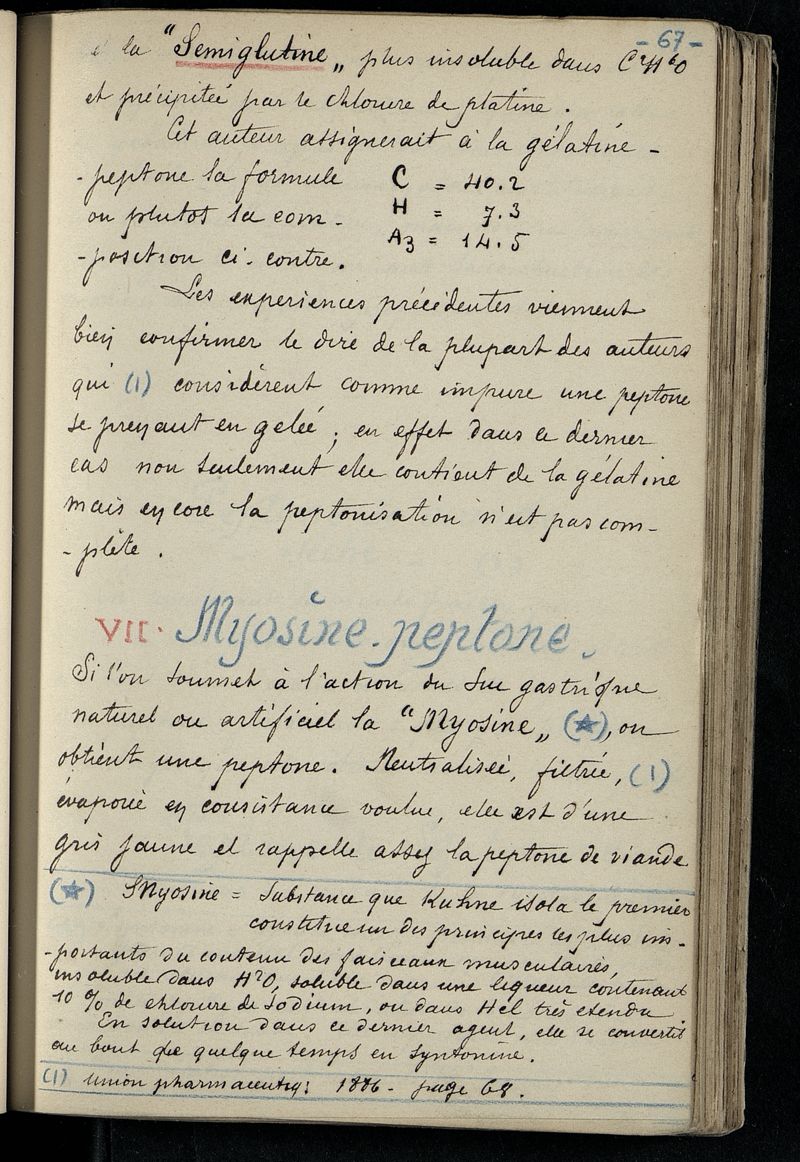 - 67 -
et la "Semiglutine„ plus insoluble dans C²H⁶O
et précipitée par le chlorure de platine.
Cet auteur assignerait à la gélatine -
- peptone la formule C = 40.2
ou plutot la com- H = 7.3
-position ci-contre. Az = 14.5
Les experiences précédentes viennent
bien confirmer le dire de la plupart des auteurs
qui (1) considèrent comme impure une peptone
se prenant en gelée ; en effet dans ce dernier
cas non seulement elle contient de la gélatine
mais encore la peptonisation n'est pas com-
- plète.
VII. Myosine-peptone.
Si l'on soumet à l'action du Suc gastrique
naturel ou artificiel la "Myosine„ (★), on
obtient une peptone. Neutralisée, filtrée, (1)
évaporée en consistance voulue, elle est d'une
gris jaune et rappelle assez la peptone de viande
(★) Myosine = Substance que Kuhne isola le premier
constitue un des principes les plus im-
-portants du contenu des faisceaux musculaires,
insoluble dans H²O, soluble dans une liqueur contenant
10 % de chlorure de Sodium, ou dans Hcl très etendu.
En solution dans ce dernier agent, elle se convertit
au bout de quelque temps en Syntonine.
(1) Union pharmaceutiq: 1886 - page 68.